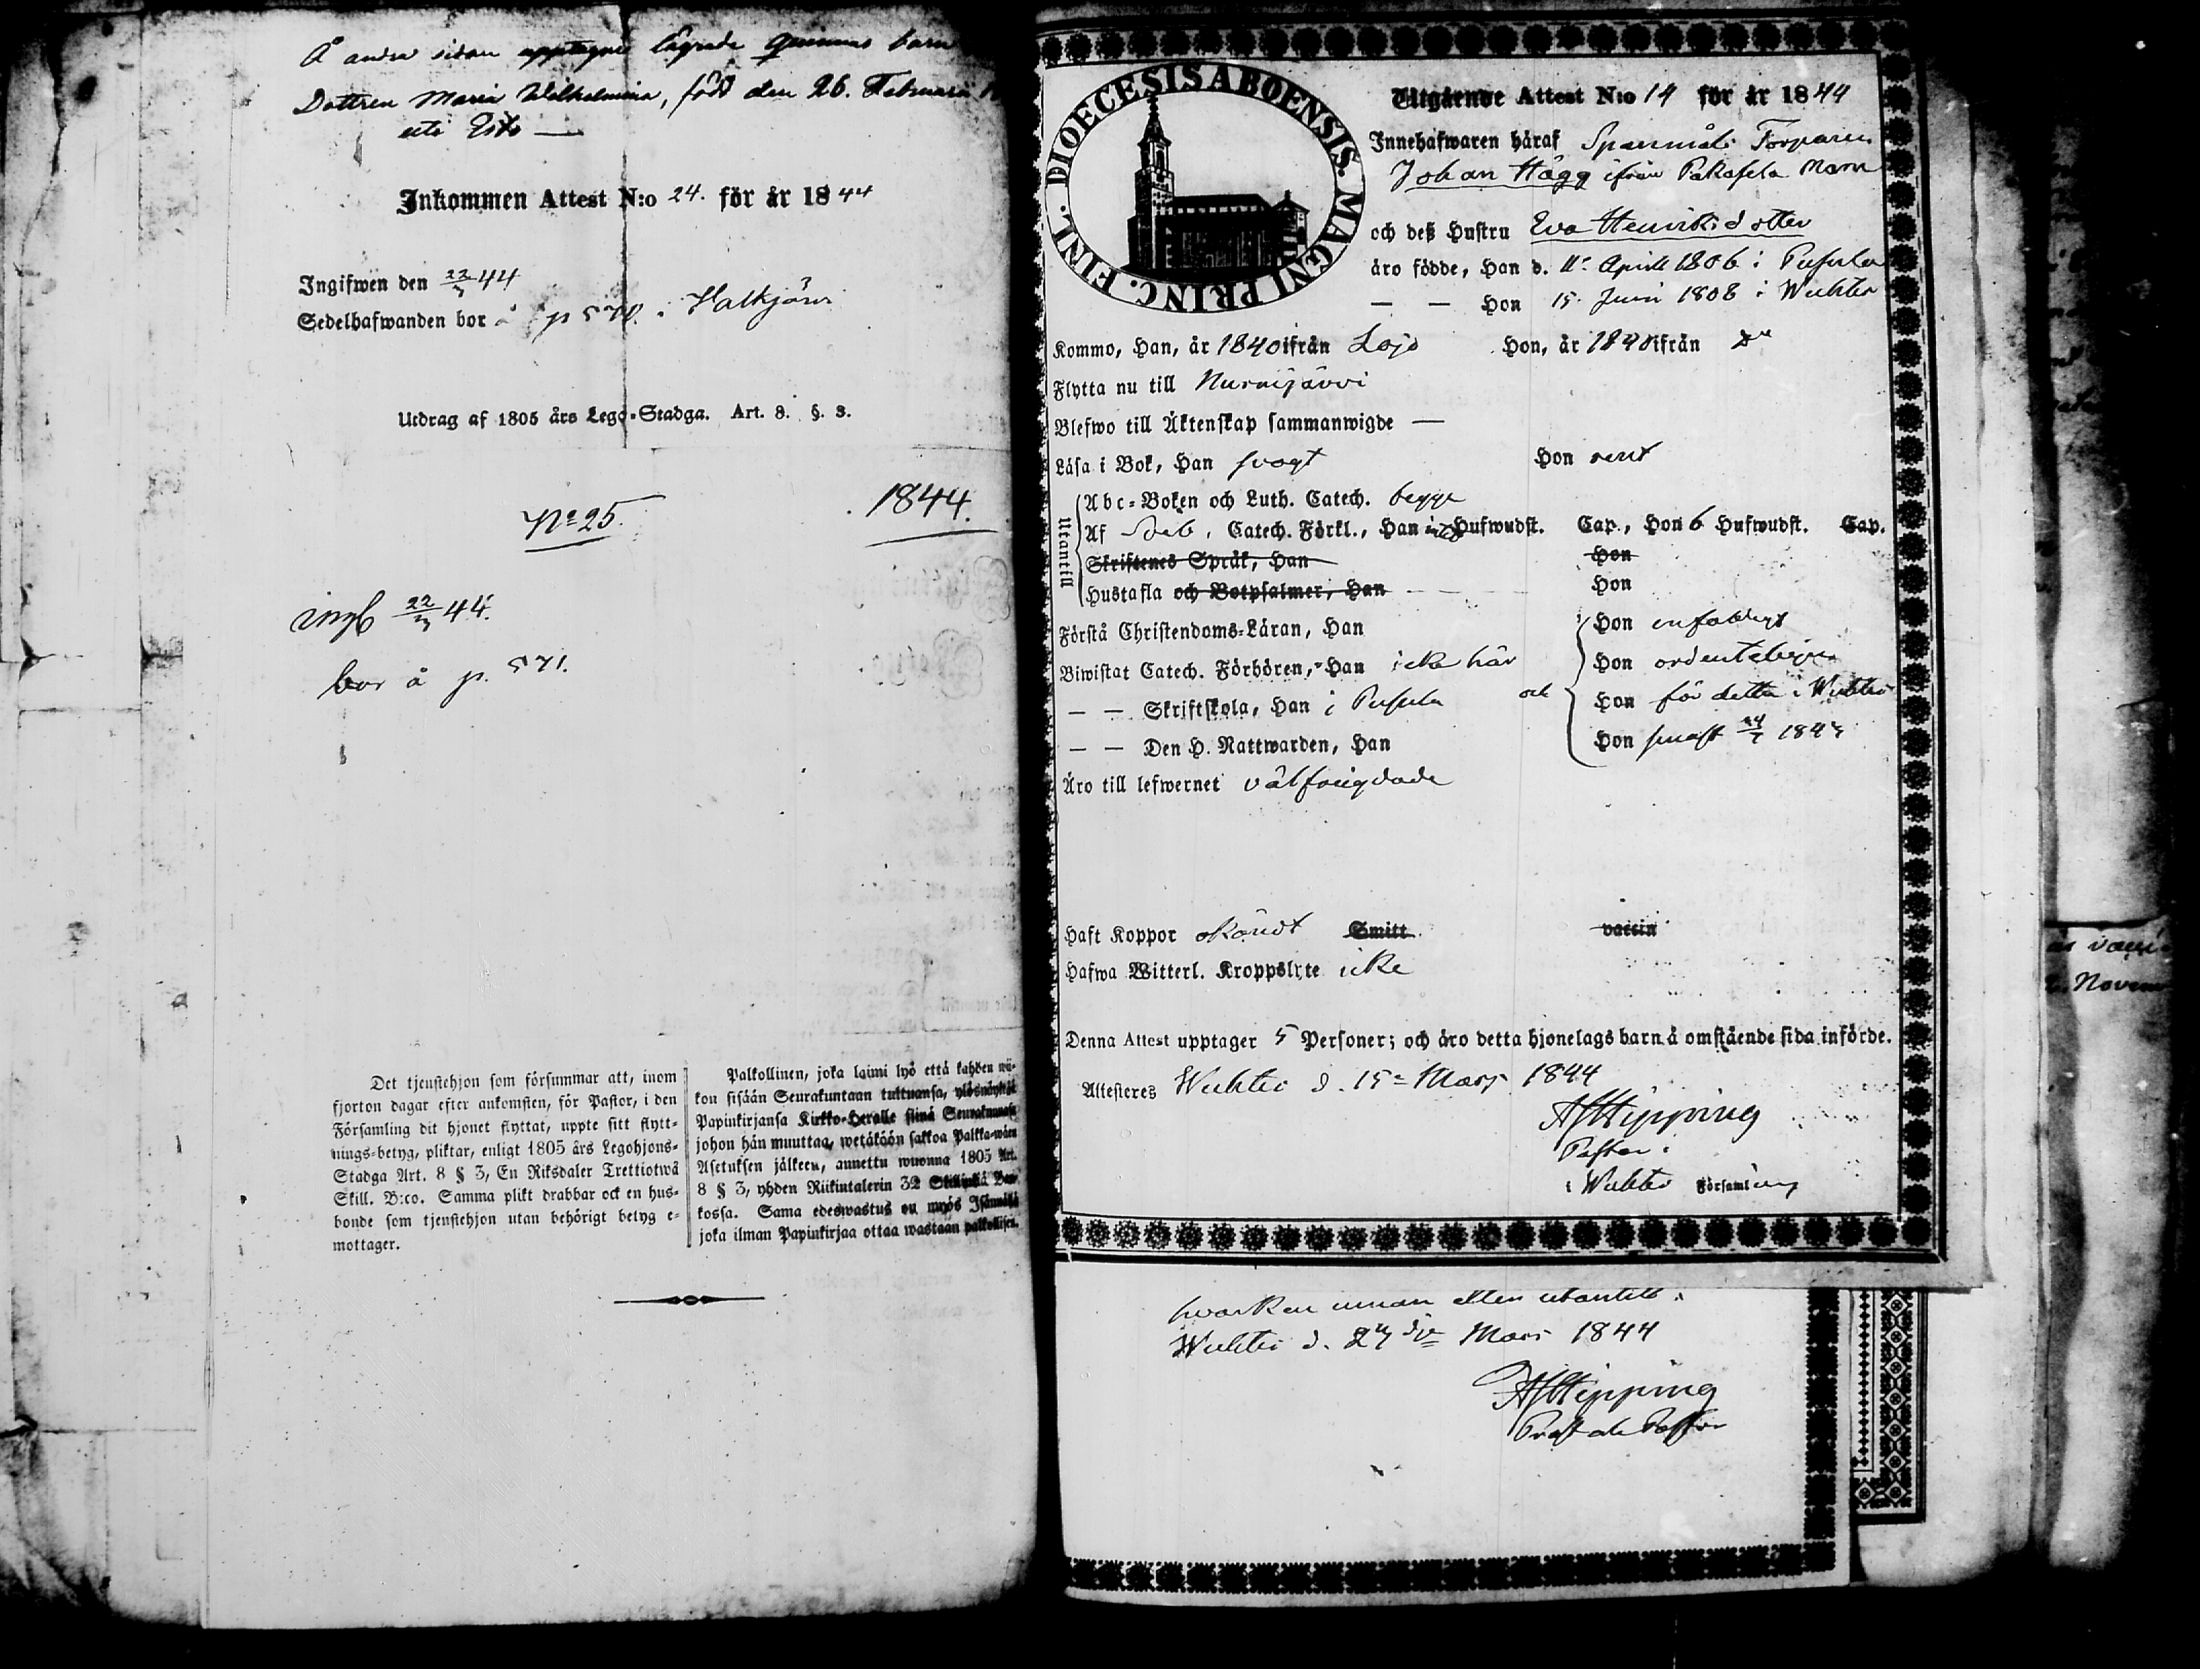 Å andra sidan upptagne lägrade qvinnas barn
Dottren Maria Wilhelmina, född den 26. Februarii
uti Esbo —
Inkommen Attest N:o 24. för år 1844
Ingifwen den 22/3 44
Sedelhafwanden bor å p 571. i Palkjärvi
Utdrag af 1805 års Lego-Stadga. Art. 8. §. 3.
No 25. 1844.
ingb 22/3 44.
bor å p. 571.
Det tjenstehjon som försummar att, inom
fjorton dagar efter ankomsten, för Pastor, i den
Församling dit hjonet flyttat, uppte sitt flytt-
nings-betyg, pliktar, enligt 1805 års Legohjons-
Stadga Art. 8 § 3, En Riksdaler Trettiotwå
Skill. B:co. Samma plikt drabbar ock en hus-
bonde som tjenstehjon utan behörigt betyg e-
mottager.
Palkollinen, joka laimi lyö että kahden wii-
kon sisään Seurakuntaan tultuansa, ylösnäyttää
Papinkirjansa Kirkko-Herralle siinä Seurakunnassa
johon hän muuttaa, wetäköön sakkoa Palkka-wäen
Asetuksen jälkeen, annettu wuonna 1805 Art.
8 § 3, yhden Riikintalerin 32 Skillinkiä Ban-
kossa. Sama edeswastus on myös Isännällä
joka ilman Papinkirjaa ottaa wastaan palkollisen.
DIOECESIS ABOENSIS. MAGNI PRINC. FINL.
Utgående Attest N:o 14 för år 1844
Innehafwaren häraf Spanmåls Torparen
Johan Hägg ifrån Pakasela
och deß Hustru Eva Henriksdotter
äro födde, Han d. 11. April 1806 i Pusula
— — Hon 15. Juni 1808 i Wichtis
Kommo, Han, år 1840 ifrån Lojo Hon, år 1840 ifrån do
Flytta nu till Nurmijärvi
Blefwo till Äktenskap sammanwigde —
Läsa i Bok, Han svagt Hon rent
Utantill
Abc-Boken och Luth. Catech. begge
Af Sveb. Catech. Förkl., Han intet Hufwudst. Cap., Hon 6 Hufwudst. Cap.
Skriftenes Språk, Han Hon
Hustafla och Botpsalmer, Han — — — Hon
Förstå Christendoms-Läran, Han Hon enfaldigt
Biwistat Catech. Förhören, Han icke här Hon ordenteligen
— — Skriftskola, Han i Pusula och Hon för detta i Wichtis
— — Den H. Nattwarden, Han Hon senast 1843
Äro till lefwernet välfreigdade
Haft Koppor okändt Smitt vaccin
Hafwa Witterl. Kroppslyte icke
Denna Attest upptager 5 Personer; och äro detta hjonelags barn å omstående sida införde.
Attesteres Wichtis d. 15 Mars 1844
AFHipping
Pastor
i Wichtis Församling
hvarken innan eller utantill.
Wichtis d. 27de Mars 1844
AFHipping
Prost och Pastor
Novem